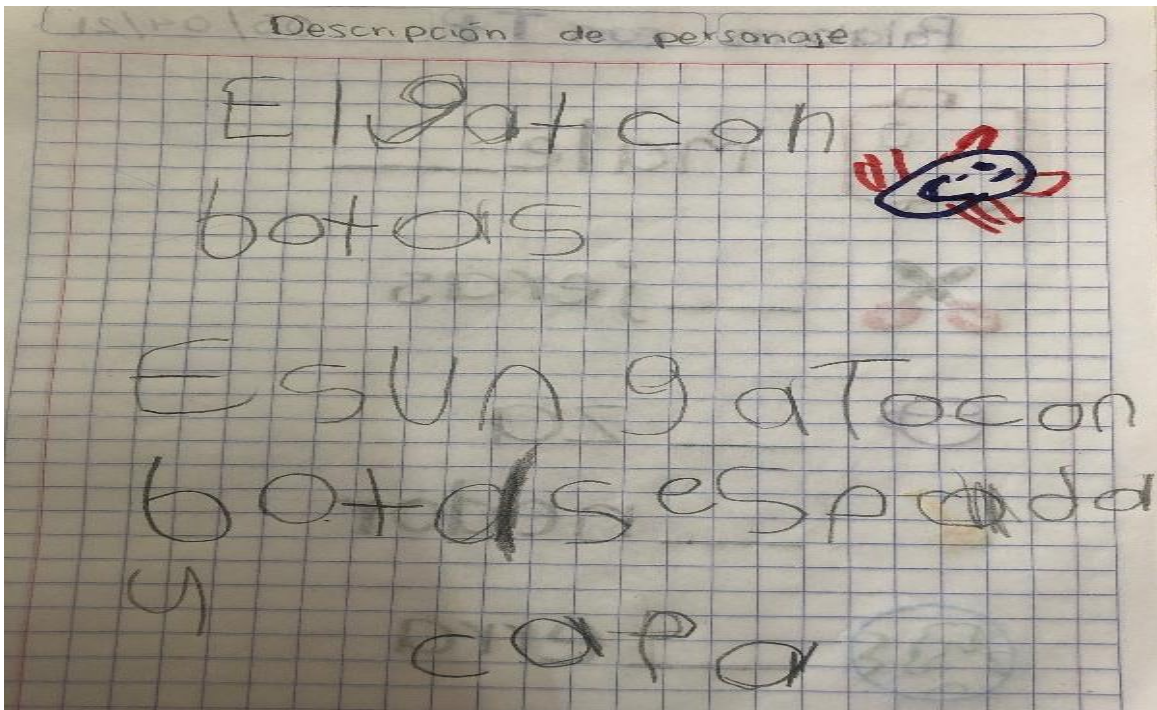 Descripción de personaje
El gat con
botas
Es un gaTo con
botas espada
y
capa